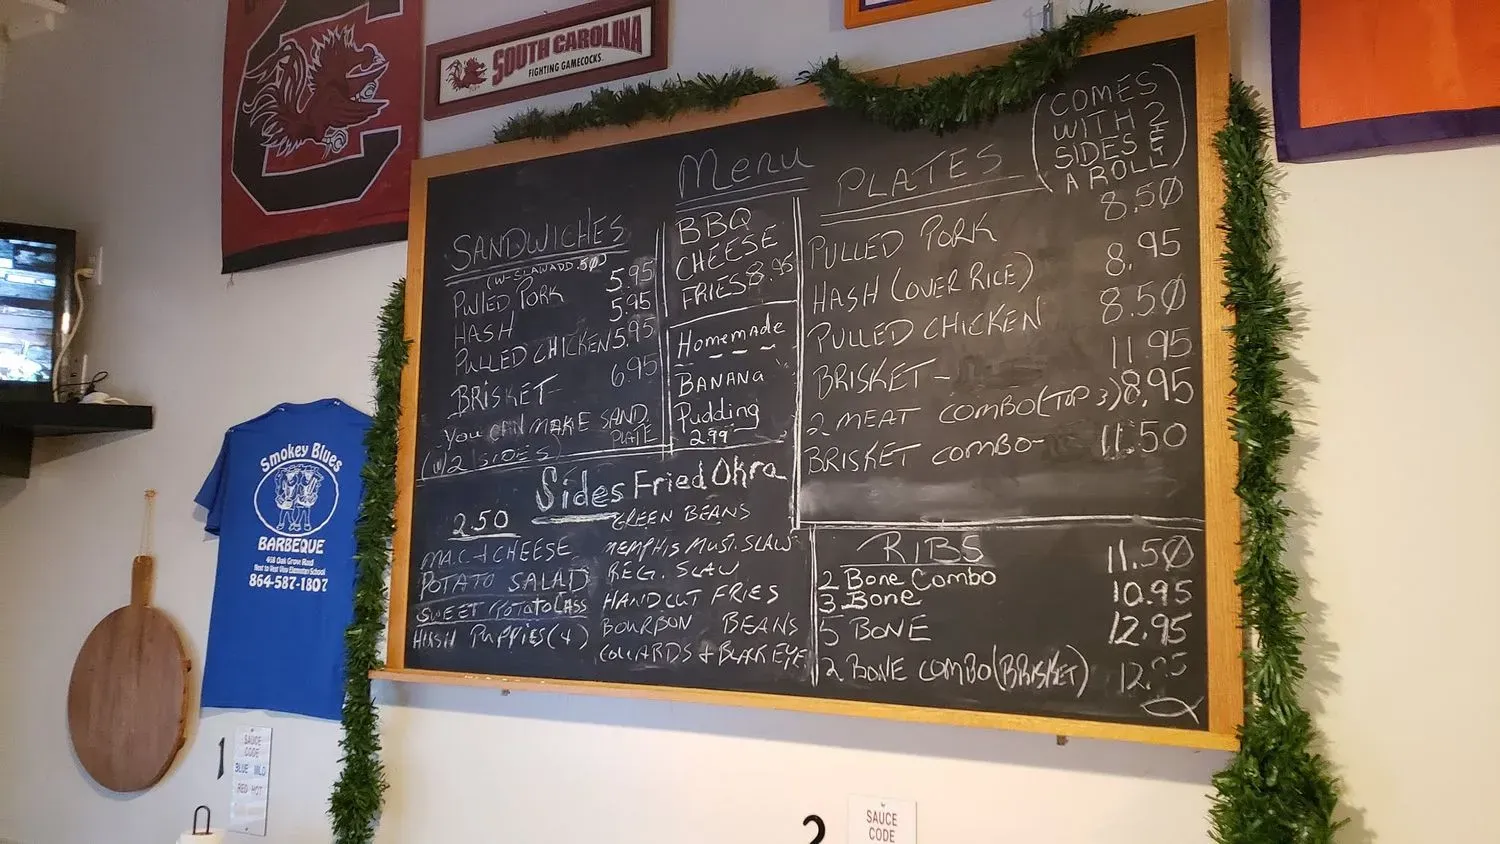 SOUTH CAROLINA
FIGHTING GAMECOCKS.
Menu
SANDWICHES
(W-SLAW ADD .50)
PULLED PORK 5.95
HASH 5.95
PULLED CHICKEN 5.95
BRISKET- 6.95
YOU CAN MAKE SAND. PLATE
(W/2 SIDES)
BBQ
CHEESE
FRIES 8.95
Homemade
BANANA
Pudding
2.99
PLATES
(COMES
WITH 2
SIDES &
A ROLL)
PULLED PORK 8.50
HASH (OVER RICE) 8.95
PULLED CHICKEN 8.50
BRISKET- 11.95
2 MEAT COMBO (TOP 3) 8.95
BRISKET COMBO- 11.50
Sides Fried Okra
2.50
GREEN BEANS
MAC + CHEESE
MEMPHIS MUST. SLAW
POTATO SALAD
REG. SLAW
SWEET POTATO CASS
HANDCUT FRIES
HUSH PUPPIES (4)
BOURBON BEANS
COLLARDS + BLACKEYE
RIBS
2 Bone Combo 11.50
3 Bone 10.95
5 BONE 12.95
2 BONE COMBO (BRISKET)
Smokey Blues
BARBEQUE
864-587-1807
1
SAUCE
CODE
BLUE MILD
RED HOT
2
SAUCE
CODE